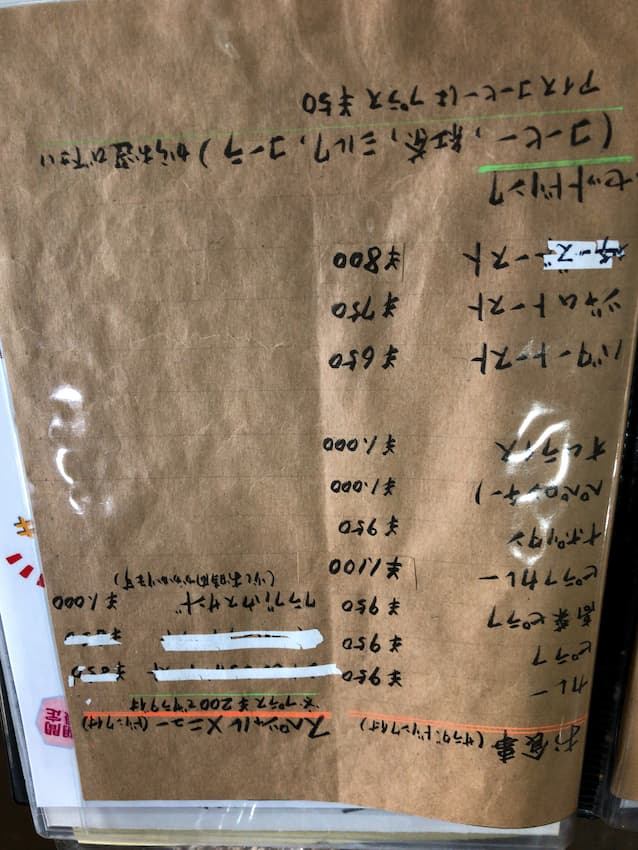 お食事 (サラダ、ドリンク付)
カレー ¥950
ピラフ ¥950
高菜ピラフ ¥950
ピラフカレー ¥1,100
ナポリタン ¥950
ペペロンチーノ ¥1,000
オムライス ¥1,000
バタートースト ¥650
ジャムトースト ¥750
チーズトースト ¥800
セットドリンク
(コーヒー, 紅茶, ミルク, コーラ) からお選び下さい
アイスコーヒーはプラス ¥50
スペシャルメニュー (ドリンク付)
※プラス¥200でサラダ付
クラブハウスサンド ¥1,000
(少しお時間かかります)
期間
限定